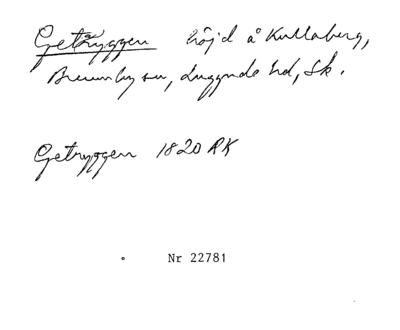 Getryggen höjd å Kullaberg,
Brunnby sn, Luggude hd, Sk.
Getryggen 1820 RK
Nr 22781